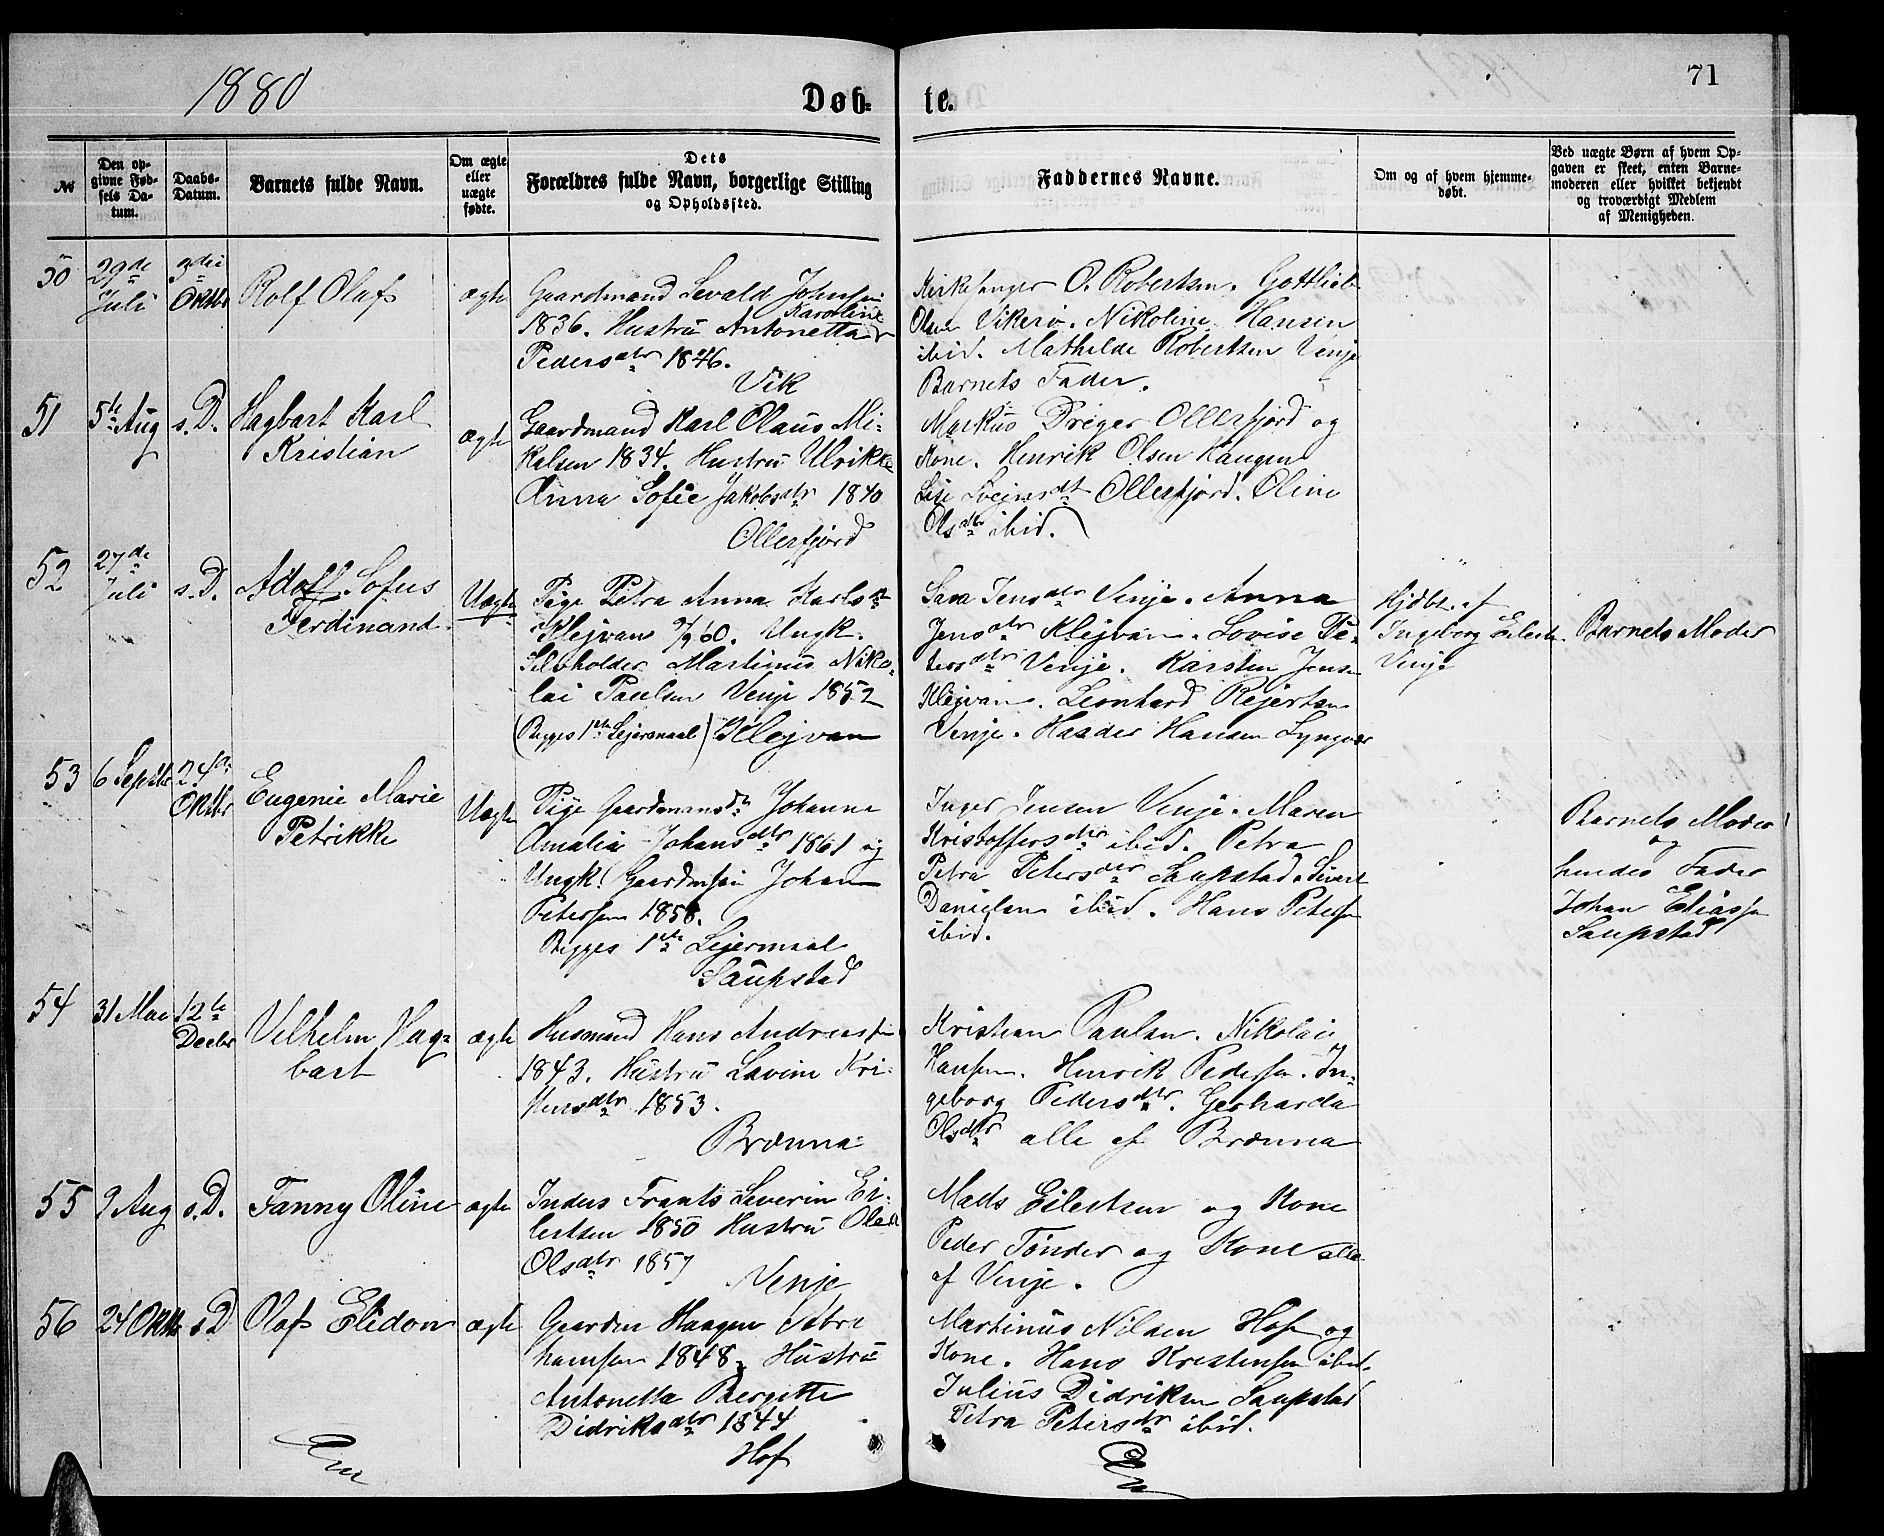 1880
Døb-
te.
71
№
Den op-
givne Fød-
sels Da-
tum.
Daabs-
Datum.
Barnets fulde Navn.
Om ægte
eller
uægte
fødte.
Dets
Forældres fulde Navn, borgerlige Stilling
og Opholdssted.
Faddernes Navne.
Om og af hvem hjemme-
døbt.
Ved uægte Børn af hvem Op-
gaven er skeet, enten Barne-
moderen eller hvilket bekjendt
og troværdigt Medlem
af Menigheden.
50
29de
Juli
3die
Oktbr
Rolf Olaf
ægte
Gaardmand Sevald Johnsen
Karoline
1836. Hustru Antonetta
Pedersdtr 1846.
Vik
Kirkesanger O. Robertsen. Gottlieb
Olsen Vikerø. Nikoline Hansen
ibid. Mathilde Robertsen Venje
Barnets Fader.
51
5te Aug
s.D.
Hagbart Karl
Kristian
ægte
Gaardmand Karl Olaus Mi-
kalsen 1834. Hustru Ulrikke
Anna Sofie Jakobsdtr 1840
Ollerfjord
Markus Dreyer Ollerfjord og
Kone. Henrik Olsen Haugen
Lise Svejnsdt Ollerfjord. Oline
Olsdtr ibid.
52
27de
Juli
s.D.
Adolf Sofus
Ferdinand.
Uægte
Pige Petra Anna Karlsdt
Klejvan 9/9 60. Ungk.
Selvholder Martinus Niko-
lai Paulsen Venje 1852
(Begges 1ste Lejermaal) Klejvan
Sara Jensdtr Venje. Anna
Jensdtr Klejvan. Lovise Pe-
tersdtr Venje. Karsten Jensen
Klejvan. Leonhard Rejertsen
Venje. Haader Hansen Lyngvær
Hjdbt. af
Ingeborg Eilertsn
Venje
Barnets Moder
53
6 Septbr
24de
Oktbr
Eugenie Marie
Petrikke
Uægte
Pige Gaardmansdtr Johanna
Amalia Johansdtr 1861 og
Ungk. Gaardmsøn Johan
Petersen 1858.
Begges 1ste Lejermaal
Saupstad
Inger Jensen Venje. Maren
Kristoffersdtr ibid. Petra
Petra Petersdtr Saupstad. Sivert
Danielsen ibid. Hans Petersen
ibid.
Barnets Moder
og
hendes Fader
Johan Eliassen
Saupstad
54
31 Mai
12te
Decbr
Vilhelm Hag-
bart
ægte
Husmand Hans Andreassen
1843. Hustru Lavine Kri-
stensdtr 1853.
Brænna
Kristian Paulsen. Nikolai
Hansen. Henrik Pedersen. In-
geborg Pedersdtr. Gerharda
Olsdtr alle af Brænna
55
9 Aug
s.D.
Fanny Oline
ægte
Inders Frants Severin Ei-
lertsen 1850 Hustru Olea
Olsdtr 1857
Venje
Mads Eilertsen og Kone
Peder Tønder og Kone alle
af Venje.
56
24 Oktbr
s D
Olaf Elidon
ægte
Gaardm Haagen Abra
hamsen 1848. Hustru
Antonetta Bergitte
Didriksdtr 1844
Hof
Martinus Nilsen Hof og
Kone. Hans Kristensen ibid.
Julius Didriksen Saupstad
Petra Petersdtr ibid.